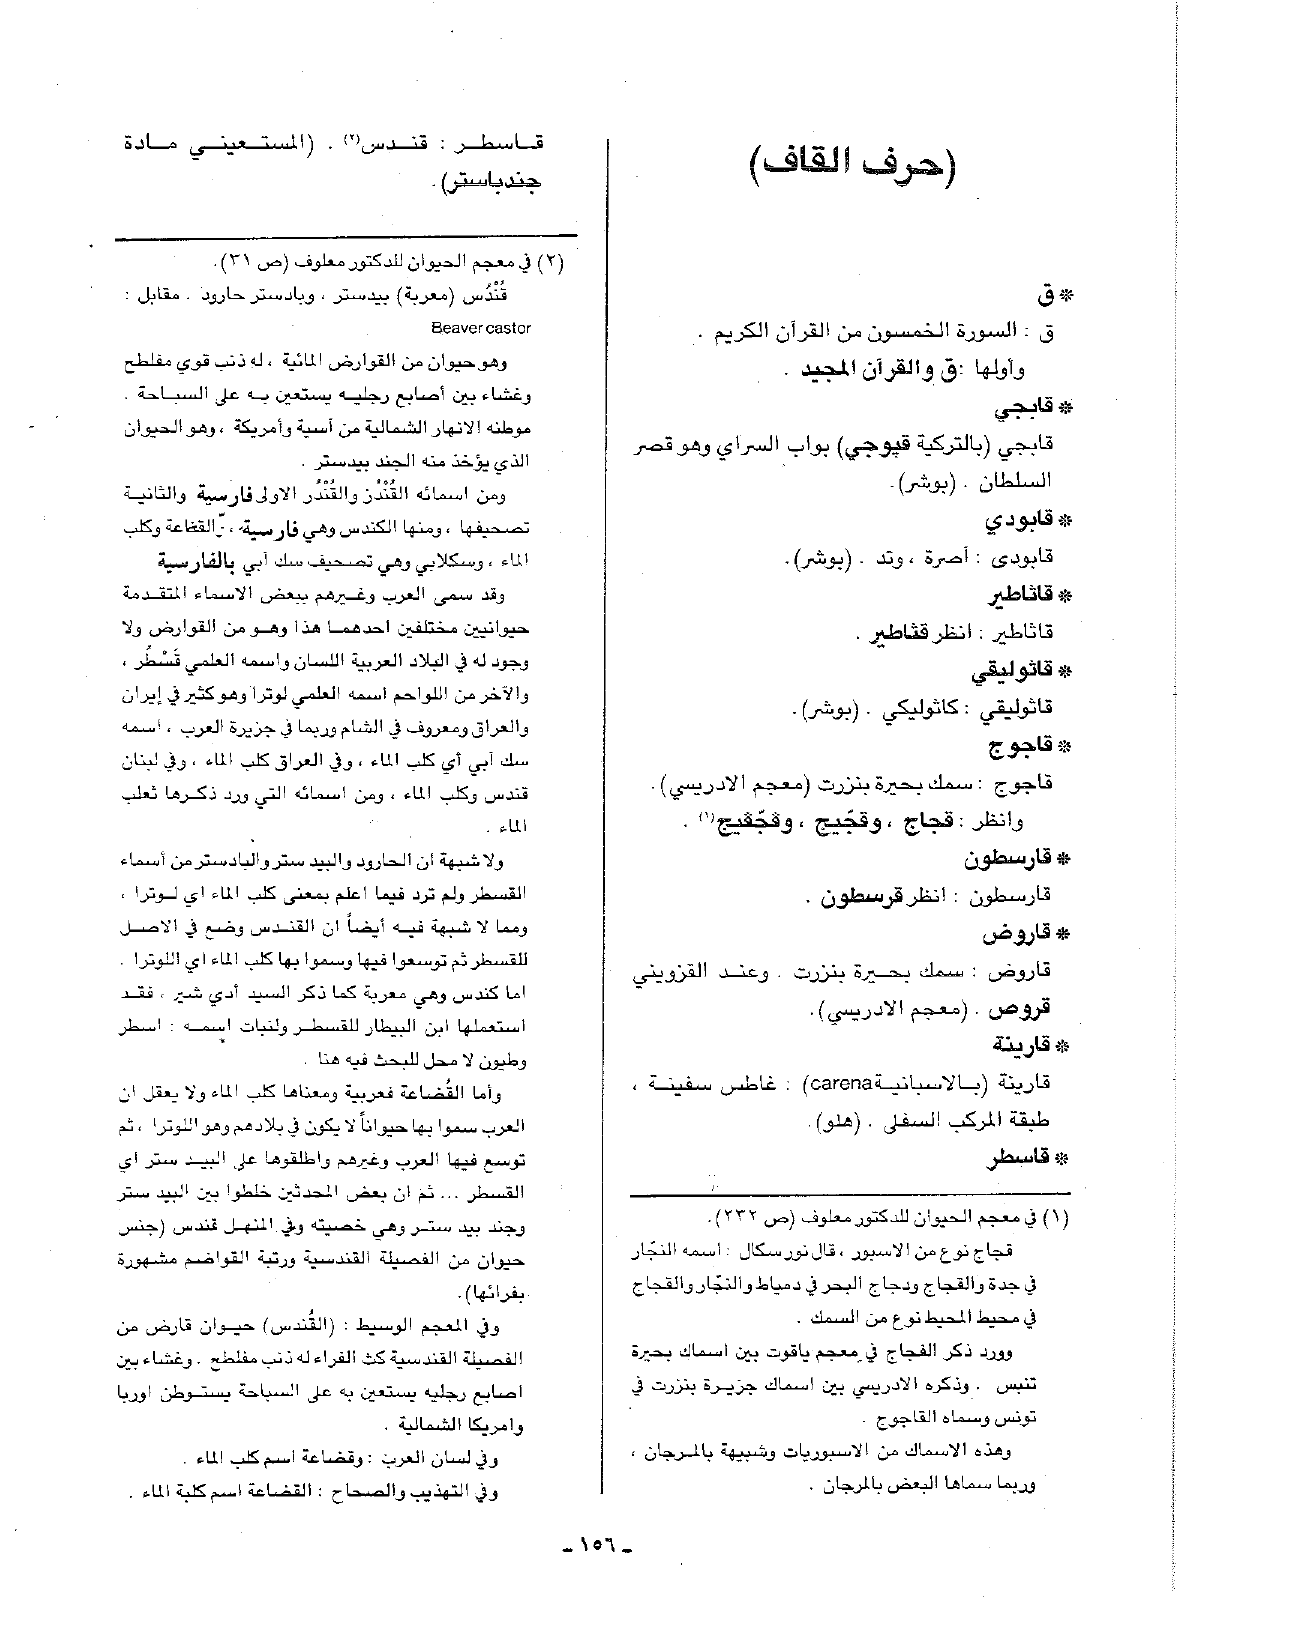 (حرف القاف)
* ق
ق : السورة الخمسون من القرآن الكريم .
وأولها : ق والقرآن المجيد .
* قابجي
قابجي (بالتركية قپوجي) بواب السراي وهو قصر
السلطان . (بوشر).
* قابودي
قابودى : أصرة ، وتد . (بوشر).
* قاثاطير
قاثاطير : انظر قثاطير .
* قاثوليقي
قاثوليقي : كاثوليكي . (بوشر).
* قاجوج
قاجوج : سمك بحيرة بنزرت (معجم الادريسي).
وانظر : قجاج ، وقجّيج ، وقجّقيج(١) .
* قارسطون
قارسطون : انظر قرسطون .
* قاروض
قاروض : سمك بحيرة بنزرت . وعند القزويني
قروص . (معجم الادريسي).
* قارينة
قارينة (بالاسبانية carena) : غاطس سفينة ،
طبقة المركب السفلى . (هلو).
* قاسطر
(١) في معجم الحيوان للدكتور معلوف (ص ٢٣٢).
قجاج نوع من الاسبور ، قال نورسكال : اسمه النجّار
في جدة والقجاج ودجاج البحر في دمياط والنجّار والقجاج
في محيط المحيط نوع من السمك .
وورد ذكر الفجاج في معجم ياقوت بين اسماك بحيرة
تنيس . وذكره الادريسي بين اسماك جزيرة بنزرت في
تونس وسماه القاجوج .
وهذه الاسماك من الاسبوريات وشبيهة بالمرجان ،
وربما سماها البعض بالمرجان .
قاسطر : قندس(٢) . (المستعيني مادة
جندباستر).
(٢) في معجم الحيوان للدكتور معلوف (ص ٣١).
قُنْدُس (معربة) بيدستر ، وبادستر حارود . مقابل :
Beaver castor
وهو حيوان من القوارض المائية ، له ذنب قوي مفلطح
وغشاء بين أصابع رجليه يستعين به على السباحة .
موطنه الانهار الشمالية من آسية وأمريكة ، وهو الحيوان
الذي يؤخذ منه الجند بيدستر .
ومن اسمائه القُنْدُز والقُنْدُر الاولى فارسية والثانية
تصحيفها ، ومنها الكندس وهي فارسية ، القضاعة وكلب
الماء ، وسكلابي وهي تصحيف سك آبي بالفارسية
وقد سمى العرب وغيرهم ببعض الاسماء المتقدمة
حيوانيين مختلفين احدهما هذا وهو من القوارض ولا
وجود له في البلاد العربية اللسان واسمه العلمي قَسْطُر ،
والآخر من اللواحم اسمه العلمي لوترا وهو كثير في إيران
والعراق ومعروف في الشام وربما في جزيرة العرب ، اسمه
سك آبي أي كلب الماء ، وفي العراق كلب الماء ، وفي لبنان
قندس وكلب الماء ، ومن اسمائه التي ورد ذكرها ثعلب
الماء .
ولا شبهة ان الحارود والبيد ستر والبادستر من أسماء
القسطر ولم ترد فيما اعلم بمعنى كلب الماء اي لوترا ،
ومما لا شبهة فيه أيضاً ان القندس وضع في الاصل
للقسطر ثم توسعوا فيها وسموا بها كلب الماء اي اللوترا .
اما كندس وهي معربة كما ذكر السيد أدي شير ، فقد
استعملها ابن البيطار للقسطر ولنبات اسمه : اسطر
وطيون لا محل للبحث فيه هنا .
وأما القُضاعة فعربية ومعناها كلب الماء ولا يعقل ان
العرب سموا بها حيواناً لا يكون في بلادهم وهو اللوترا ، ثم
توسع فيها العرب وغيرهم واطلقوها على البيد ستر اي
القسطر ... ثم ان بعض المحدثين خلطوا بين البيد ستر
وجند بيد ستر وهي خصيته وفي المنهل قندس (جنس
حيوان من الفصيلة القندسية ورتبة القواضم مشهورة
بفرائها).
وفي المعجم الوسيط : (القُندس) حيوان قارض من
الفصيلة القندسية كث الفراء له ذنب مفلطح . وغشاء بين
اصابع رجليه يستعين به على السباحة يستوطن اوربا
وامريكا الشمالية .
وفي لسان العرب : وقضاعة اسم كلب الماء .
وفي التهذيب والصحاح : القضاعة اسم كلبة الماء .
ـ ١٥٦ ـ